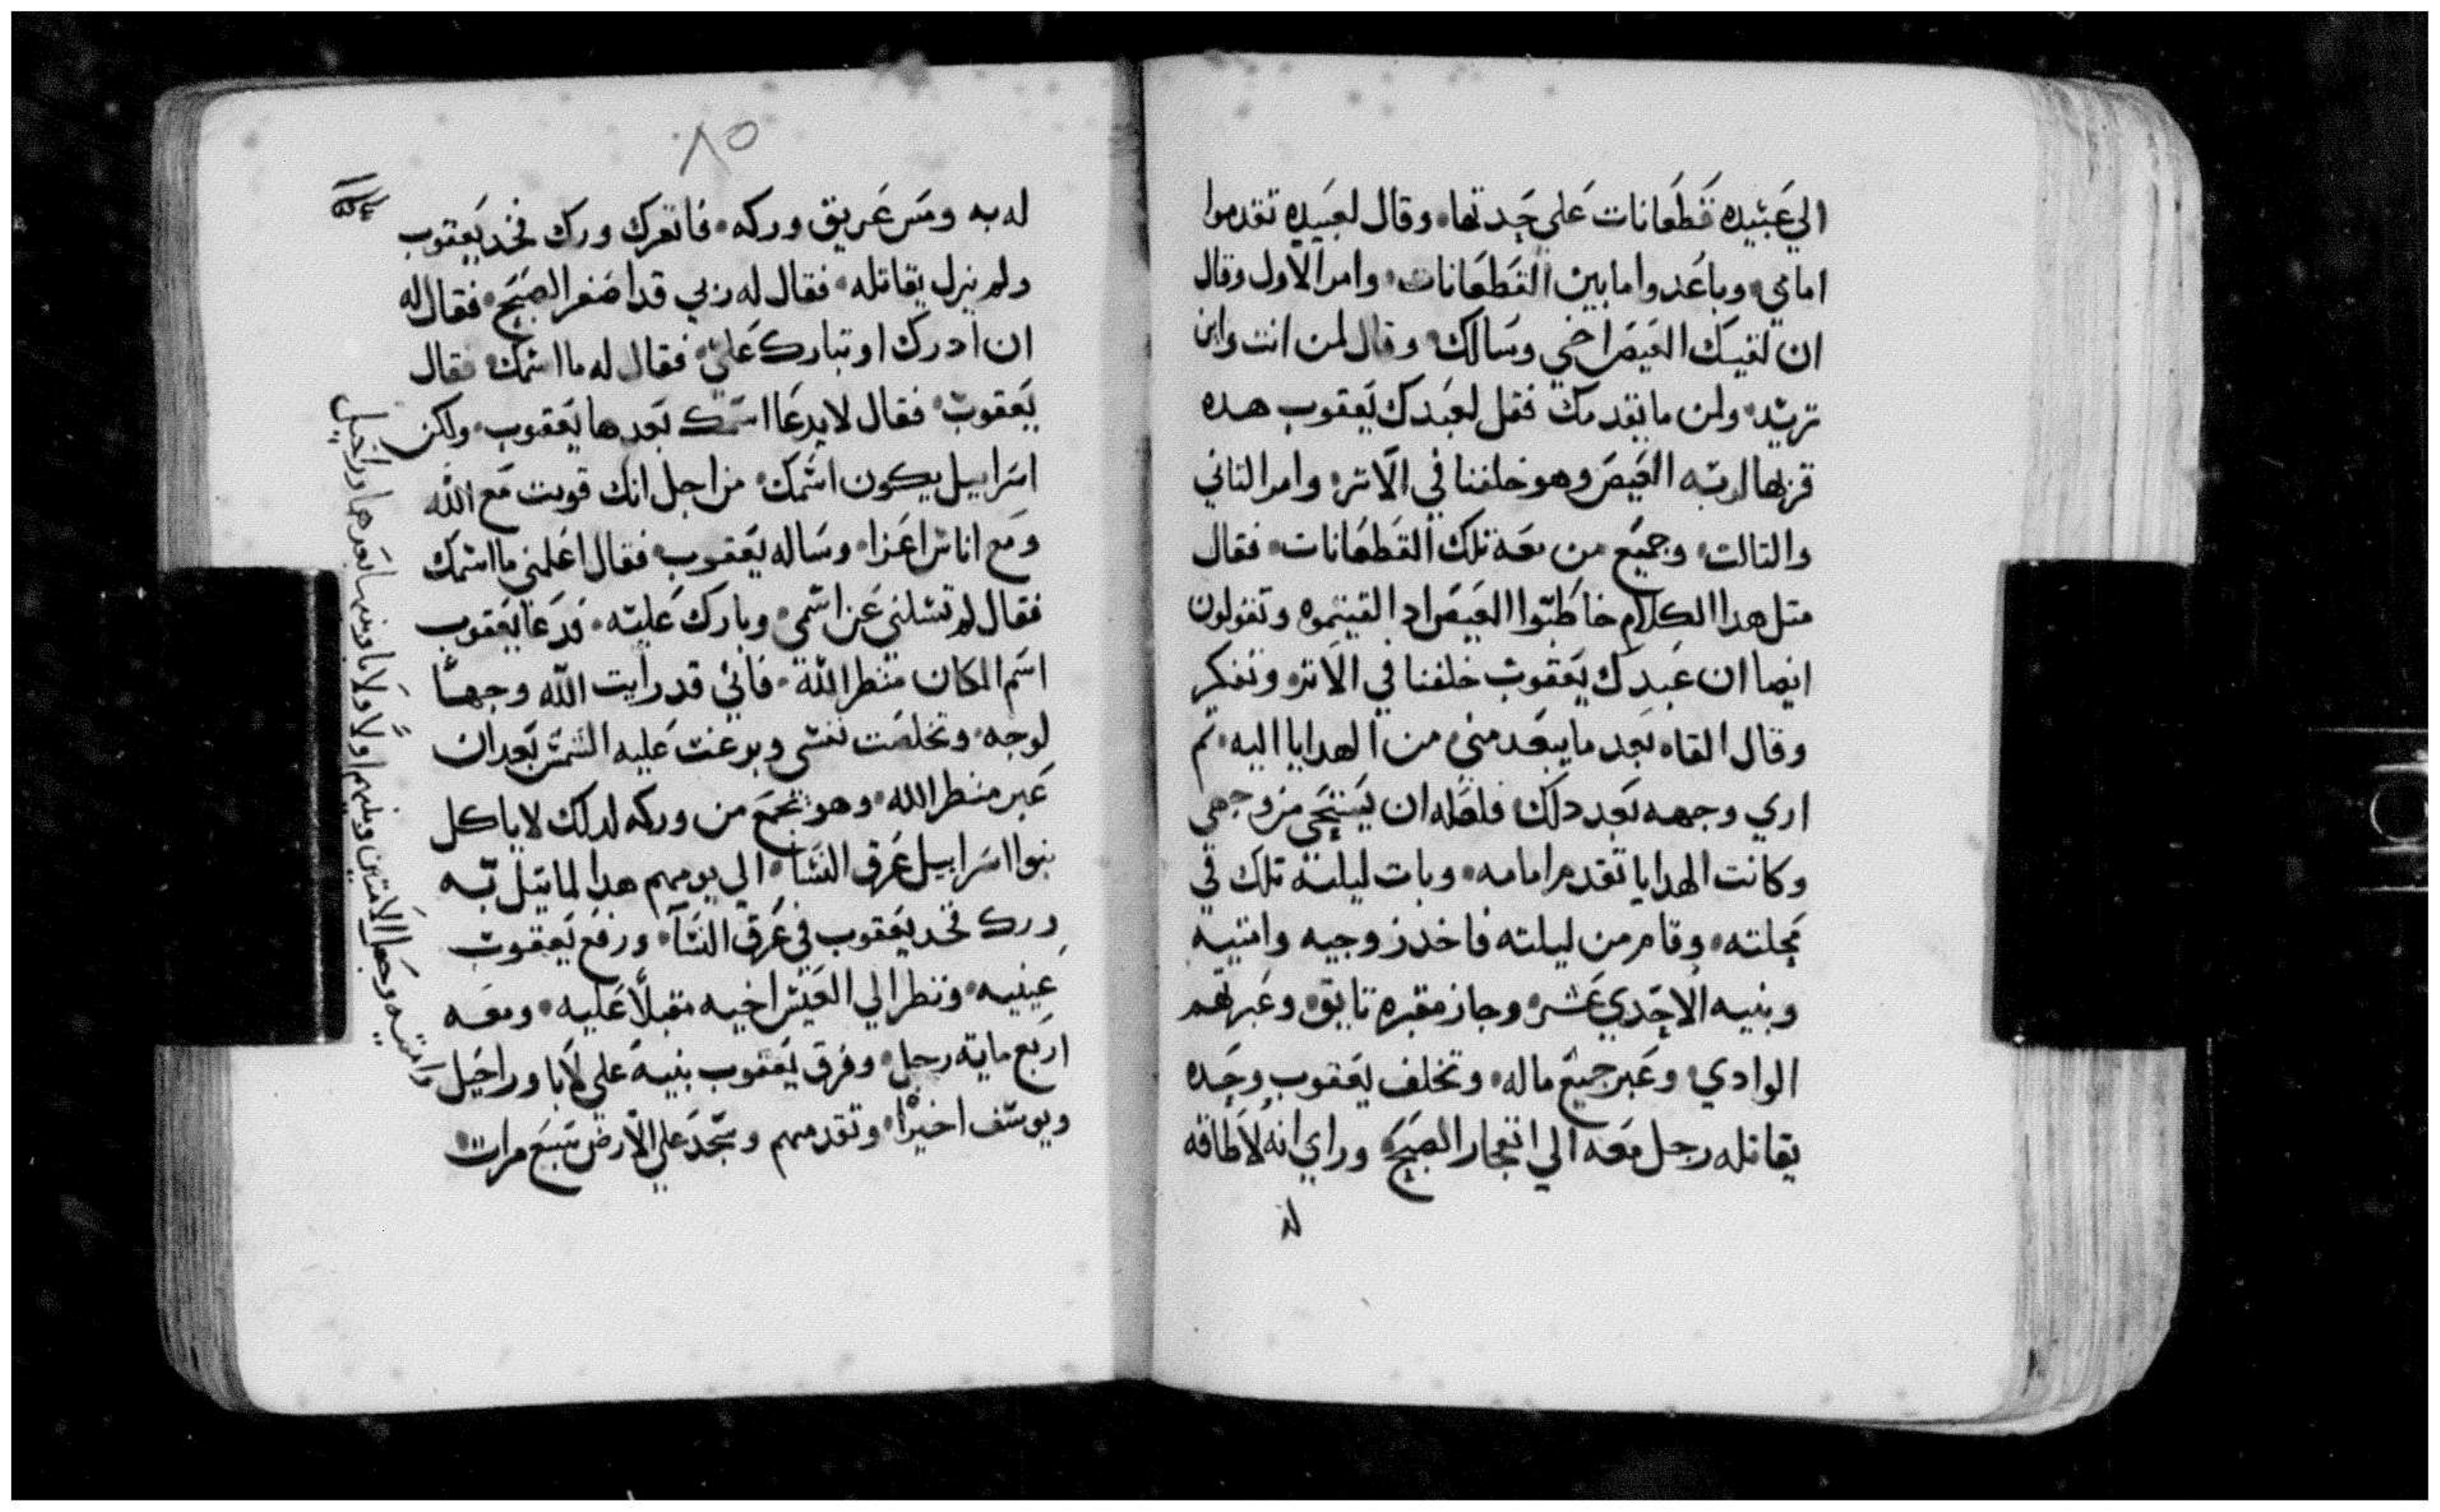 الي عبيده قطعانات علي حدتها، وقال لعبيده تقدموا
امامي، وباعدوا ما بين القطعانات، وامر الاول وقال
ان لقيك العيص اخي وسالك، وقال لمن انت واين
تريد، ولمن ما يقدمك فقل لعبدك يعقوب هده
قربها لربه العيص وهو خلفنا في الاتر، وامر التاني
والتالت، وجميع من معه تلك القطعانات، فقال
متل هدا الكلام خاطبوا العيص ادا لقيتموه وتقولون
ايضا ان عبدك يعقوب خلفنا في الاتر وتفكر
وقال القاه بعد ما يبعد مني من الهدايا اليه، تم
اري وجهه بعد دلك فلعله ان يستحي من وجهي
وكانت الهدايا تقدم امامه، وبات ليلته تلك في
محلته، وقام من ليلته فاخد زوجيه وامتيه
وبنيه الاحدي عشر، وجاز مقبره تابق، وعبر بهم
الوادي، وعبر جميع ماله، وتخلف يعقوب وحده
يقاتله رجل معه الي انفجار الصبح، وراي انه لا طاقه
له
٨٥
له به ومس عريق وركه، فاتعرك ورك فخد يعقوب
ولم يزل يقاتله، فقال له زبي قد اصفر الصبح، فقال له
ان ادرك او تبارك علي، فقال له ما اسمك فقال
يعقوب، فقال لا يدعا اسمك بعدها يعقوب، ولكن
اسراييل يكون اسمك، من اجل انك قويت مع الله
ومع اناس اعزا، وساله يعقوب، فقال اعلمني ما اسمك
فقال لم تسلني عن اسمي، وبارك عليه، فدعا يعقوب
اسم المكان منظر الله، فاني قد رايت الله وجهاً
لوجه، وتخلصت نفسي وبرغت عليه الشمس بعد ان
عبر منظر الله، وهو تجمع من وركه لدلك لا ياكل
بنوا اسراييل عرق النسا، الي يومهم هدا لما تيل به
ورك فخد يعقوب في عرق النسا، ورفع يعقوب
عينيه، ونظر الي العيس اخيه مقبلاً عليه، ومعه
اربع مايه رجل، وفرق يعقوب بنيه علي لايا وراحيل
وامتيه وجعل الامتين وبنيهم اولاً ولايا وبنيها بعدها وراحيل
ويوسف اخيرا، وتقدمهم وسجد علي الارض سبع مرات